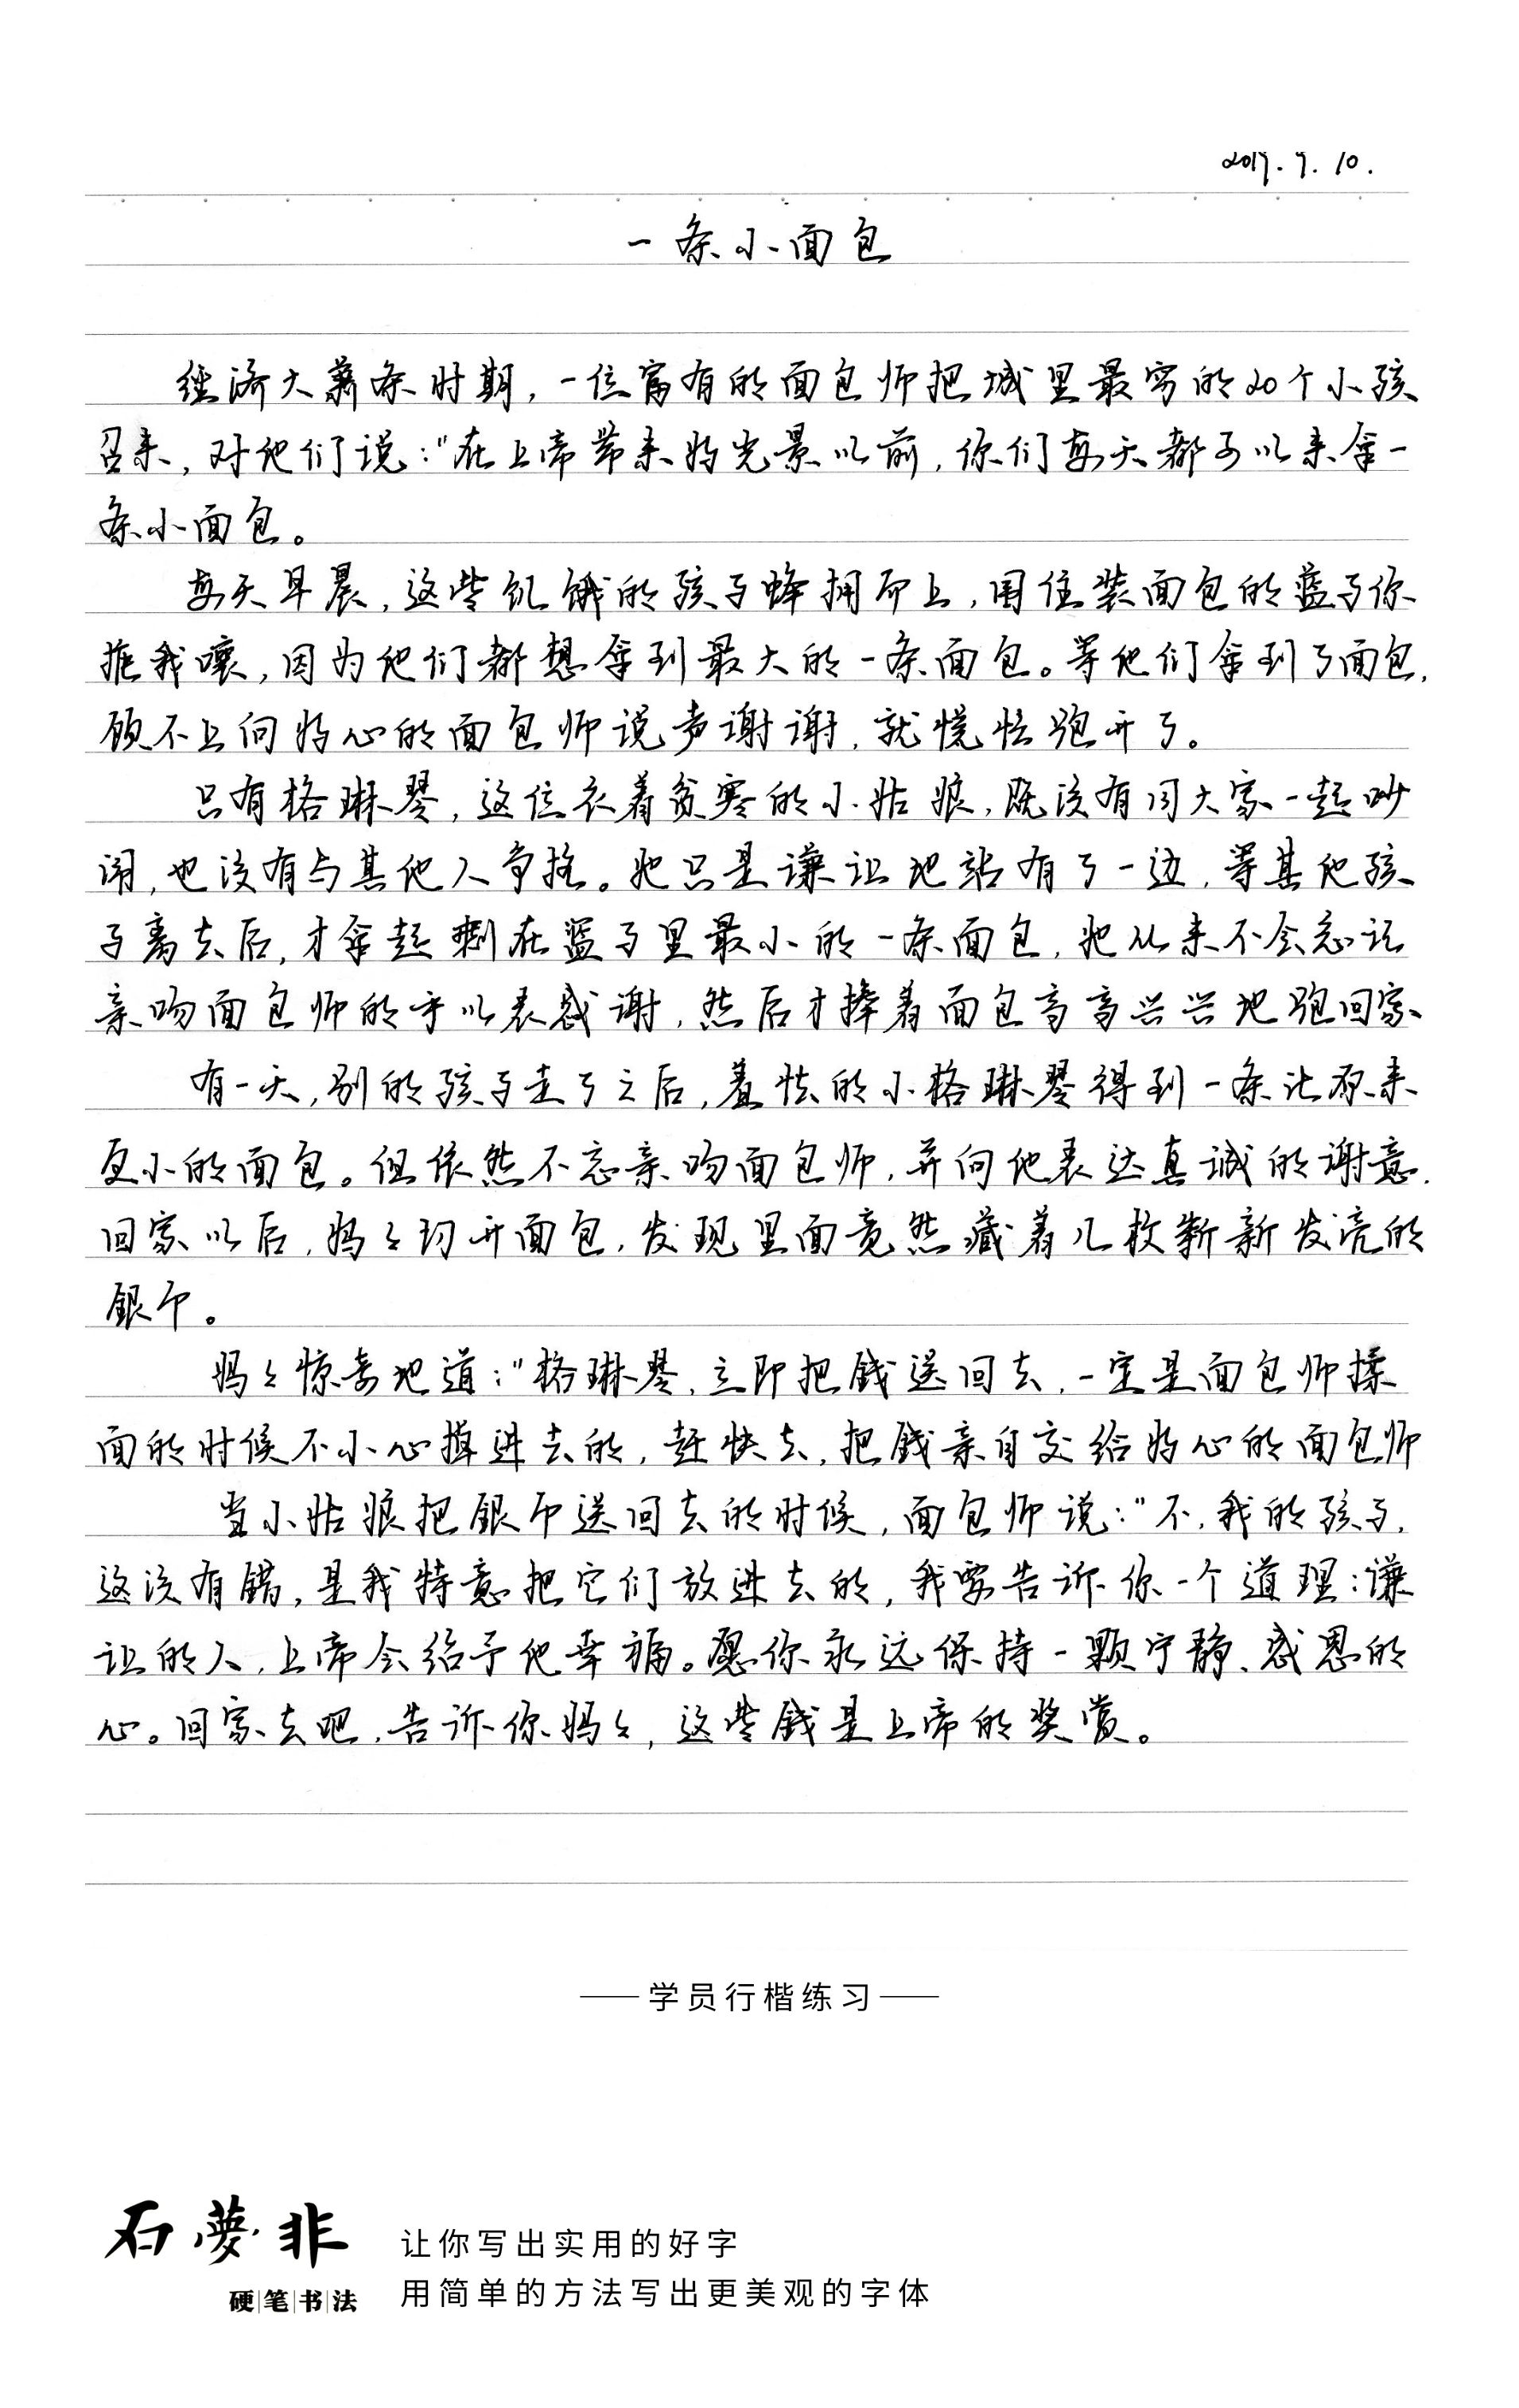 2017.9.10.
一条小面包
经济大萧条时期,一位富有的面包师把城里最穷的20个小孩
召来,对他们说:"在上帝带来好光景以前,你们每天都可以来拿一
条小面包。
每天早晨,这些饥饿的孩子蜂拥而上,围住装面包的蓝子你
推我嚷,因为他们都想拿到最大的一条面包。等他们拿到了面包,
顾不上向好心的面包师说声谢谢,就慌忙跑开了。
只有格琳琴,这位衣着贫寒的小姑娘,既没有同大家一起吵
闹,也没有与其他人争抢。她只是谦让地站有了一边,等其他孩
子离去后,才拿起剩在篮子里最小的一条面包,她从来不会忘记
亲吻面包师的手以表感谢,然后才捧着面包高高兴兴地跑回家
有一天,别的孩子走了之后,羞怯的小格琳琴得到一条比原来
更小的面包。但依然不忘亲吻面包师,并向他表达真诚的谢意.
回家以后,妈々切开面包,发现里面竟然藏着几枚崭新发亮的
銀币。
妈々惊奇地道:"格琳琴,立即把錢送回去,一定是面包师揉
面的时候不小心掉进去的,赶快去,把錢亲自交给好心的面包师
当小姑娘把銀币送回去的时候,面包师说:"不,我的孩子,
这没有错,是我特意把它们放进去的,我要告诉你一个道理:谦
让的人,上帝会给予他幸福。愿你永远保持一颗宁静、感恩的
心。回家去吧,告诉你妈々,这些錢是上帝的奖赏。
——学员行楷练习——
石夢非
硬|笔|书|法
让你写出实用的好字
用简单的方法写出更美观的字体